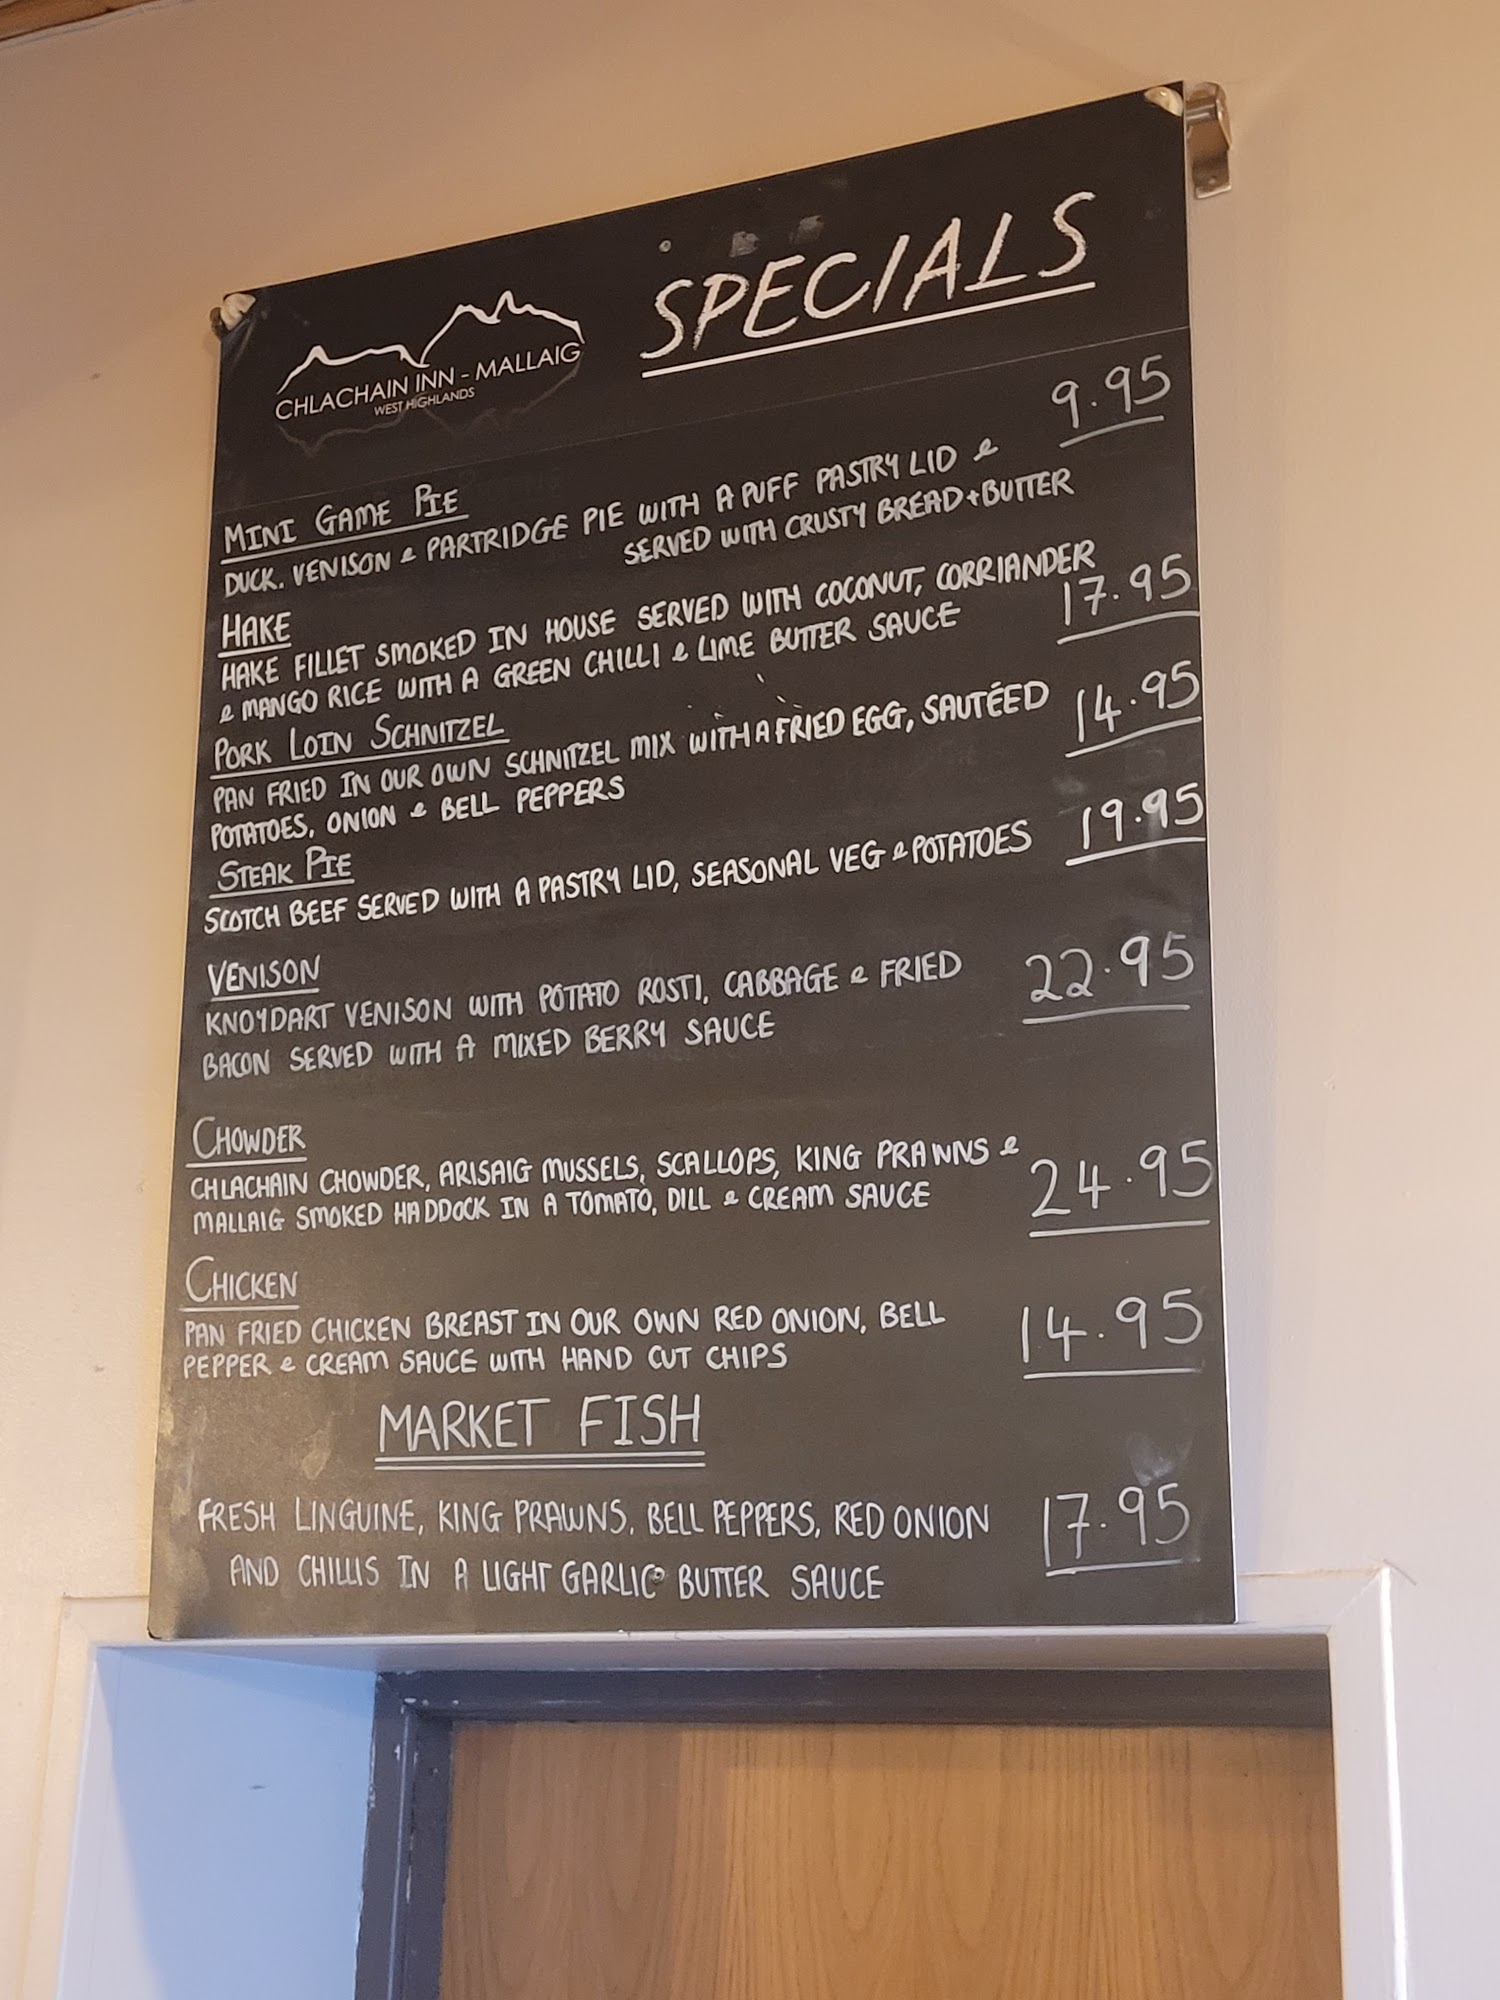 SPECIALS
CHLACHAIN INN - MALLAIG
WEST HIGHLANDS
MINI GAME PIE 9.95
DUCK. VENISON & PARTRIDGE PIE WITH A PUFF PASTRY LID &
SERVED WITH CRUSTY BREAD + BUTTER
HAKE
HAKE FILLET SMOKED IN HOUSE SERVED WITH COCONUT, CORRIANDER
& MANGO RICE WITH A GREEN CHILLI & LIME BUTTER SAUCE 17.95
PORK LOIN SCHNITZEL
PAN FRIED IN OUR OWN SCHNITZEL MIX WITH A FRIED EGG, SAUTÉED 14.95
POTATOES, ONION & BELL PEPPERS
STEAK PIE
SCOTCH BEEF SERVED WITH A PASTRY LID, SEASONAL VEG & POTATOES 19.95
VENISON
KNOYDART VENISON WITH POTATO ROSTI, CABBAGE & FRIED 22.95
BACON SERVED WITH A MIXED BERRY SAUCE
CHOWDER
CHLACHAIN CHOWDER, ARISAIG MUSSELS, SCALLOPS, KING PRAWNS & 24.95
MALLAIG SMOKED HADDOCK IN A TOMATO, DILL & CREAM SAUCE
CHICKEN
PAN FRIED CHICKEN BREAST IN OUR OWN RED ONION, BELL 14.95
PEPPER & CREAM SAUCE WITH HAND CUT CHIPS
MARKET FISH
FRESH LINGUINE, KING PRAWNS, BELL PEPPERS, RED ONION 17.95
AND CHILLIS IN A LIGHT GARLIC BUTTER SAUCE